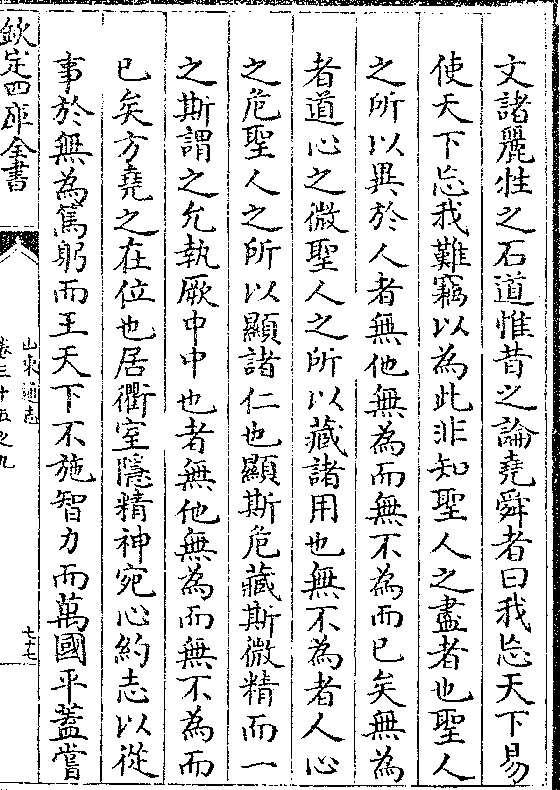 文諸麗牲之石道惟昔之論堯舜者曰我忘天下易
使天下忘我難竊以為此非知聖人之盡者也聖人
之所以異於人者無他無為而無不為而已矣無為
者道心之微聖人之所以藏諸用也無不為者人心
之危聖人之所以顯諸仁也顯斯危藏斯微精而一
之斯謂之允執厥中中也者無他無為而無不為而
已矣方堯之在位也居衢室隱精神宛心約志以從
事於無為篤躬而王天下不施智力而萬國平蓋嘗
欽定四庫全書
山東通志
卷三十五之九
七七